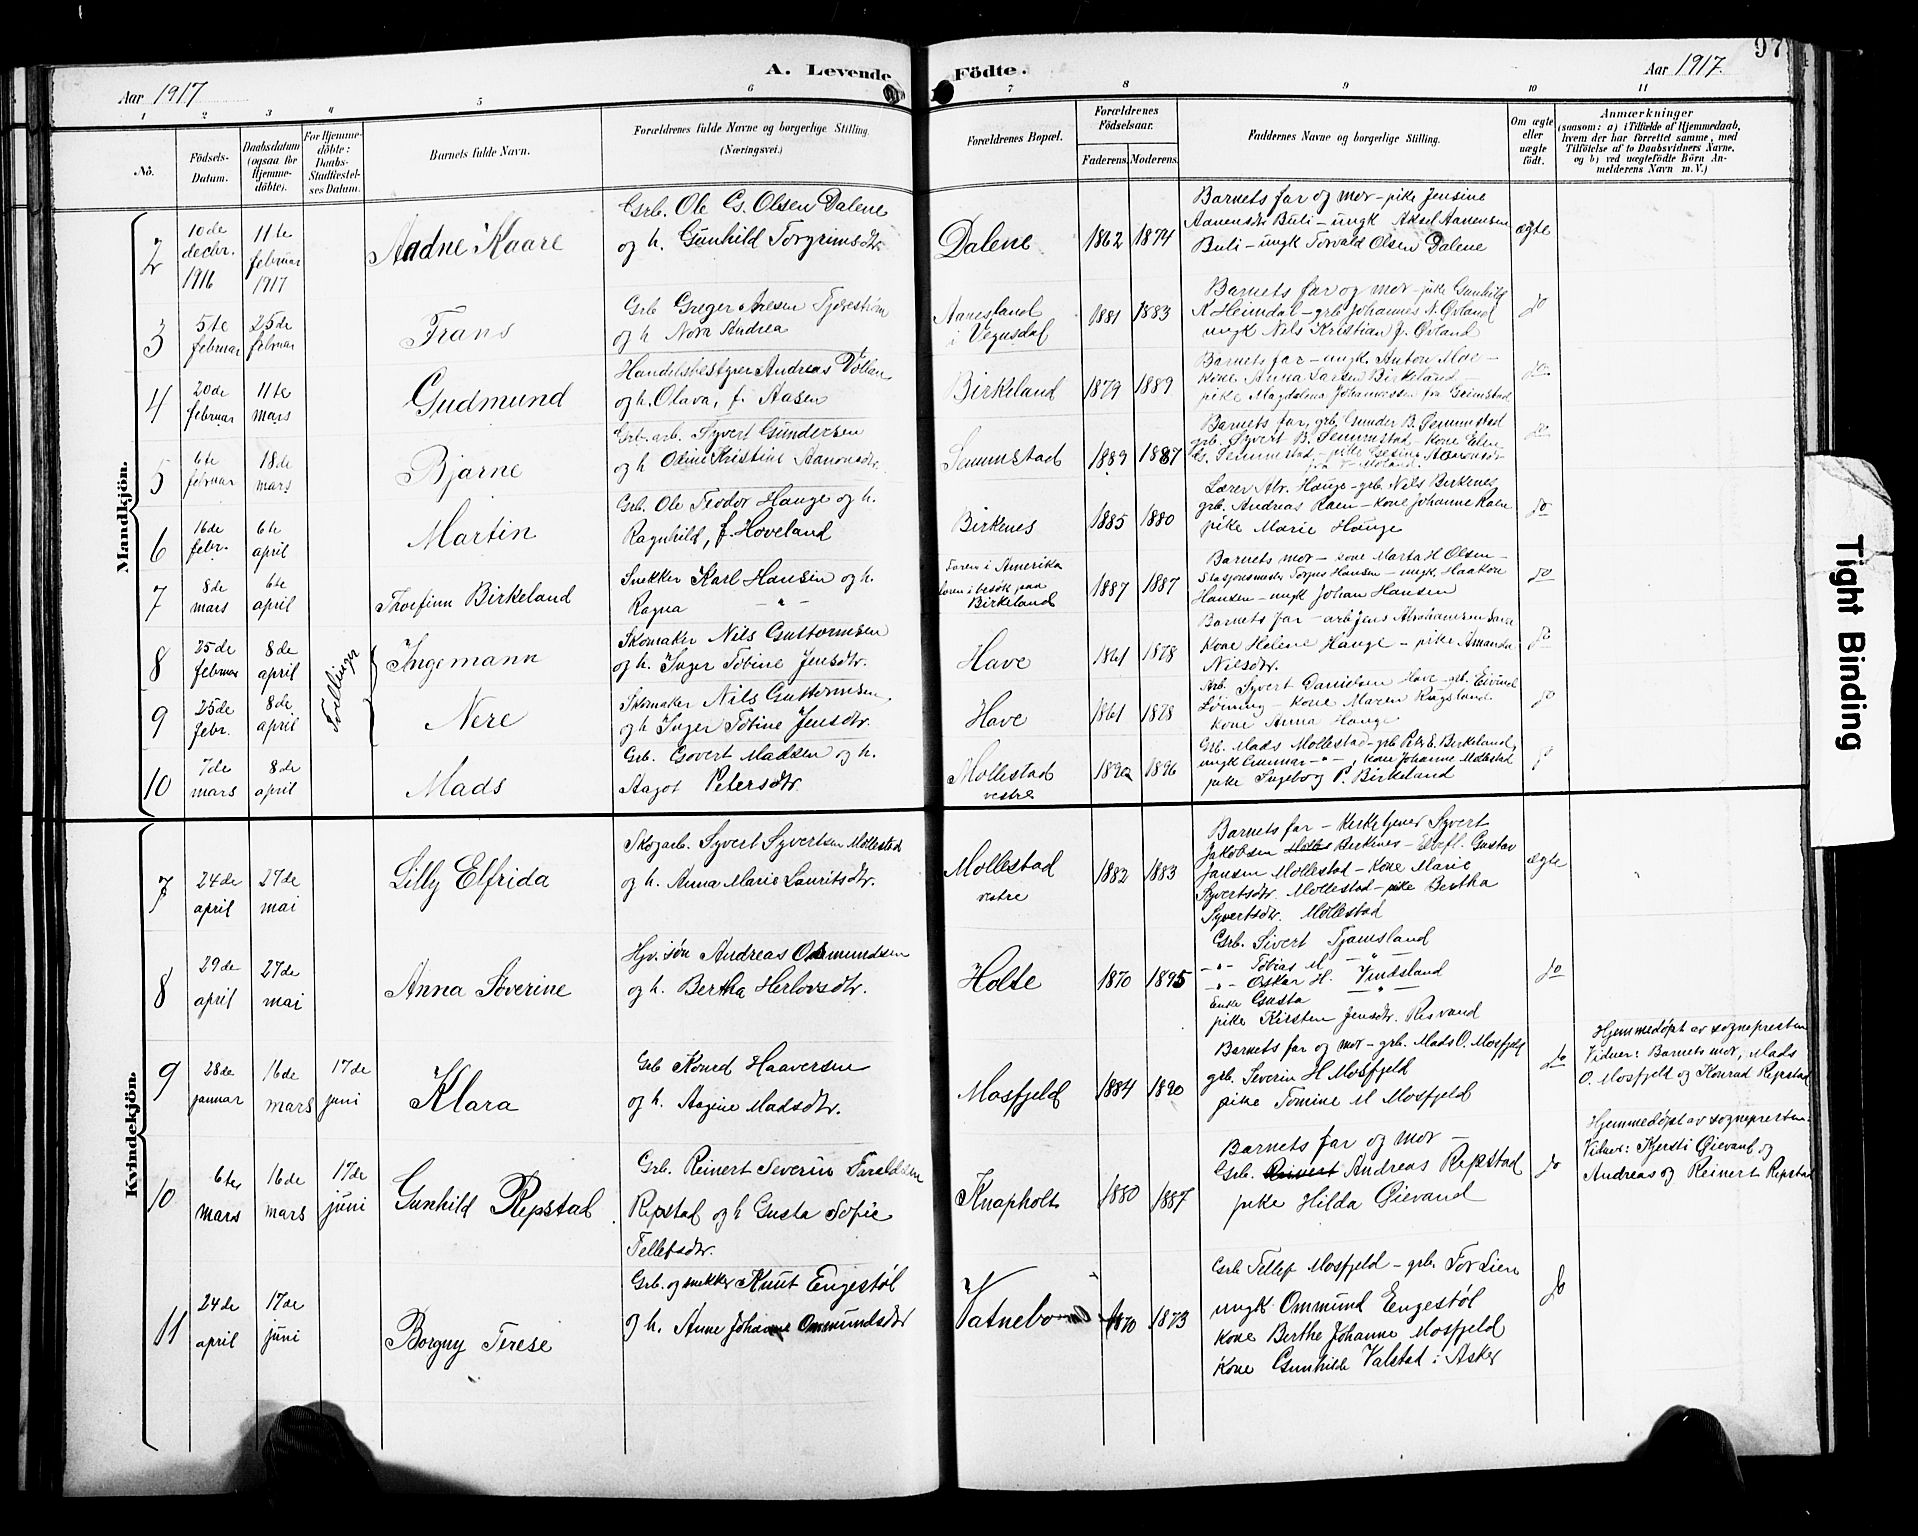 97
A. Levende Födte.
Aar 1917
Aar 1917.
1 2 3 4 5 6 7 8 9 10 11
No.
Födsels-Datum.
Daabsdatum (ogsaa for Hjemme-döbte).
For Hjemme-döbte: Daabs-Stadfæstel-ses Datum.
Barnets fulde Navn.
Forældrenes fulde Navne og borgerlige Stilling. (Næringsvei.)
Forældrenes Bopæl.
Forældrenes Födselsaar.
Faderens. Moderens.
Faddernes Navne og borgerlige Stilling.
Om ægte eller uægte födt.
Anmærkninger
(saasom: a) i Tilfælde af Hjemmedaab,
hvem der har forrettet samme, med
Tilföielse af to Daabsvidners Navne,
og b) ved uægtefödte Börn An-
melderens Navn m. V.)
Mandkjön.
2
10de decbr. 1916
11te februar 1917
Aadne Kaare
Grb. Ole G. Olsen Dalene
og h. Gunhild Torgrimsdtr.
Dalene
1862 1874
Barnets far og mor – pike Jensine
Aanensdtr Buli – ungk Aksel Aanensen
Buli – ungk Torvald Olsen Dalene
ægte
3
5te februar
25de februar
Frans
Grb Greger Tjorestrøm
og h Nora Andrea
Aanesland
i Vegusdal
1881 1883
Barnets far og mor – pike Gunhild
K Heimdal – grb Johannes N. Øvland
ungk Nils Kristian J. Øvland
do
4
20de februar
11te mars
Gudmund
Handelsbestyrer Andreas
og h. Olava, f. Aasen
Birkeland
1879 1889
Barnets far – ungk. Anton Moe –
kone Anna Larsen Birkeland
pike Magdalena Johannessen fra Grimstad
do
5
6te februar
18de mars
Bjarne
Grb. arb. Syvert Gundersen
og h Oline Kristine Aanonsdtr.
Senumstad
1889 1887
Barnets far, grb. Gunder B. Senumstad
grb. Syvert B. Senumstad – kone Elen
G. Senumstad – pike Gesine Aanonsdtr
do
6
16de febr.
6te april
Martin
Grb. Ole Teodor Hauge og h.
Ragnhild, f. Hoveland
Birkenes
1885 1880
Lærer Alv. Hauge – grb. Nils Birkenes
grb. Andreas Raen – kone Johanne Raen
pike Marie Hauge
do
7
8de mars
6te april
Thorfinn Birkeland
Snekker Karl Hansen og h.
Ragna –"–
Faren i Amerika
moren i besøk paa
Birkeland
1887 1887
Barnets mor – kone Marta H Olsen –
Stasjonsmester Torjus Hansen – ungk. Haakon
Hansen – ungk Johan Hansen
do
8
25de februar
8de april
Tvillinger
Ingemann
Skomaker Nils Guttormsen
og h. Inger Tobine Jensdtr.
Have
1861 1878
Barnets far – arb Jens Abrahamsen
Kone Helene Hauge – pike Amanda
Nilsdtr.
do
9
25de febr.
8de april
Nere
Skomaker Nils Guttormsen
og h Inger Tobine Jensdtr.
Have
1861 1878
Arb. Syvert Danielsen Have – grb. Eivind
Løvning – kone Maren Ringsland
kone Anna Hauge
do
10
7de mars
8de april
Mads
Grb. Govert Madsen og h.
Aagot Petersdtr.
Mollestad
vestre
1892 1896
Grb. Mads Mollestad – grb Peter E. Birkeland,
ungk Gunnar –"–, kone Johanne Mollestad
pike Ingeborg P. Birkeland
Kvindekjön.
7
24de april
27de mai
Lilly Elfrida
Skogarb. Syvert Syvertsen Mollestad
og h. Anna Marie Lauritsdtr.
Mollestad
vestre
1882 1883
Barnets far – Kirketjener Syvert
Jakobsen Birkenes – Gustav
Jansen Mollestad – kone Marie
Syvertsdtr. Mollestad – pike Bertha
Syvertsdtr. Mollestad
ægte
8
29de april
27de mai
Anna Severine
Hjv. søn Andreas Osmundsen
og h. Bertha Herlovsdtr.
Holte
1870 1895
Grb. Sivert Tjomsland
–"– Tobias M –"–
–"– Oskar H. Vindsland
Enke Gusta –"–
pike Kirsten Jensdtr. Risvand
do
9
28de januar
16de mars
17de juni
Klara
Grb Konrad Haaversen
og h. Aagine Madsdtr.
Mosfjeld
1884 1890
Barnets far og mor – grb. Mads O. Mosfjeld
grb. Severin H Mosfjeld
pike Tomine M Mosfjeld
do
Hjemmedøpt av sognepresten
Vidner: Barnets mor, Mads
O. Mosfjelt og Konrad Repstad
10
6te mars
16de mars
17de juni
Gunhild Repstad
Grb. Reinert Severin Taraldsen
Repstad og h Gusta Sofie
Tellefsdtr.
Knapholt
1880 1887
Barnets far og mor –
Grb. Reinert Andreas Repstad
pike Hilda Øievand
do
Hjemmedøpt av sognepresten.
Vidner: Kjersti Øievand og
Andreas og Reinert Repstad
11
24de april
17de juni
Borgny Terese
Grb. og snekker Knut Engestøl
og h. Anne Johanne Ommundsdtr
Vatnebo
1870 1873
Grb Tellef Mosfjeld – grb. Tor Lien
ungk. Ommund Engestøl
kone Berthe Johanne Mosfjeld
kone Gunhilde Valstad i Asker
do
Tight Binding